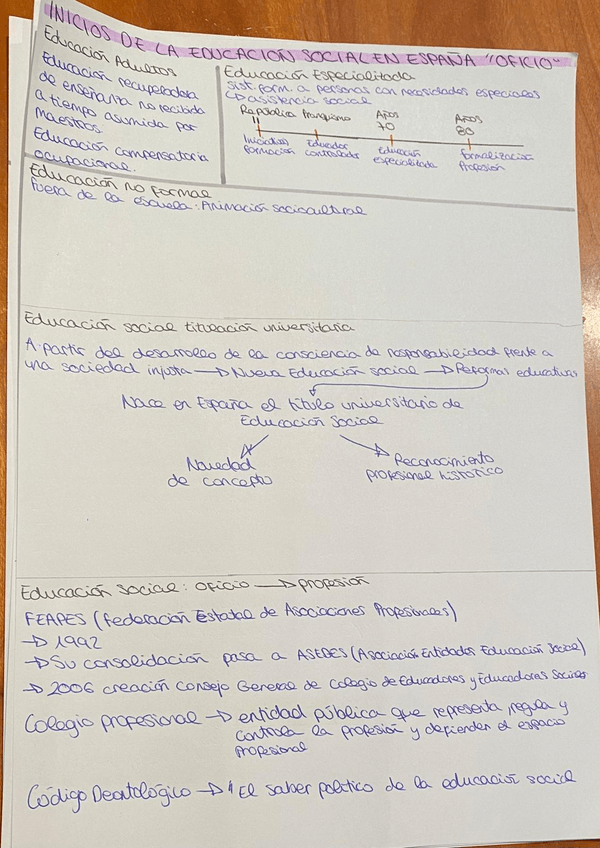 INICIOS DE LA EDUCACIÓN SOCIAL EN ESPAÑA "OFICIO"
Educación Adultos
Educación recuperadora
de enseñanza no recibida
a tiempo asumida por
maestros
Educación compensatoria
ocupacional.
Educación Especializada
Sist. form. a personas con necesidades especiales
↳ asistencia social
República Franquismo Años 70 Años 80
Iniciativas formación Educador controlador Educación especializada Formalización Profesión
Educación no formal
Fuera de la escuela: Animación sociocultural
Educación social titulación universitaria
A partir del desarrollo de la consciencia de responsabilidad frente a
una sociedad injusta → Nueva Educación social → Reformas educativas
Nace en España el título universitario de
Educación Social
Novedad
de concepto
Reconocimiento
profesional histórico
Educación social: oficio → profesión
FEAPES (Federación Estatal de Asociaciones Profesionales)
→ 1992
→ Su consolidación pasa a ASEDES (Asociación Entidades Educación Social)
→ 2006 creación Consejo General de Colegio de Educadores y Educadoras Sociales
Colegio profesional → entidad pública que representa regula y
controla la profesión y defiende el espacio
profesional
Código Deontológico → "El saber político de la educación social